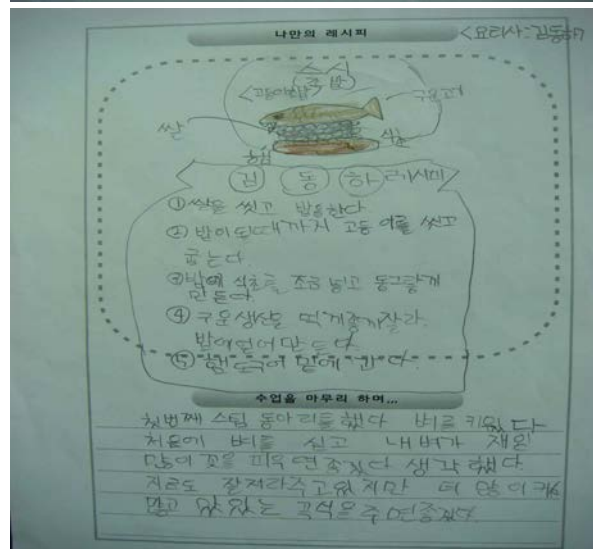 나만의 레시피
<요리사:김동하>
스시
(초밥)
<고등어초밥>
구운고기
쌀
식초
김동하 레시피
①쌀을 씻고 밥을한다
②밥이될때까지 고등어를 씻고
굽는다.
③밥에 식초를 조금 넣고 동그랗게
만든다.
④구운생선을 먹기좋게잘라.
밥에얹어만든다.
⑤ 밑에 깐다.
수업을 마무리 하며...
첫번째 스팀 동아리를했다 벼를 키웠다
처음에 벼를 심고 내벼가 제일
많이 꽃을 피우면좋겠다 생각했다
지금도 잘자라주고있지만 더 많이
많고 맛있는 곡식을주면좋겠다.